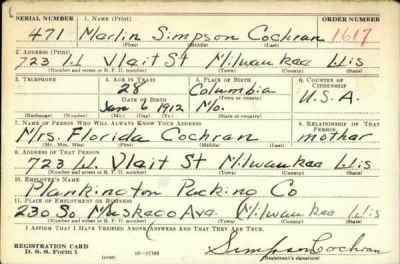 SERIAL NUMBER 1. NAME (Print) ORDER NUMBER
471 Marlin Simpson Cochran 1617
(First) (Middle) (Last)
2. ADDRESS (Print)
723 W Vlait St Milwaukee Wis
(Number and street or R. F. D. number) (Town) (County) (State)
3. TELEPHONE 4. AGE IN YEARS 5. PLACE OF BIRTH 6. COUNTRY OF CITIZENSHIP
28 Columbia
DATE OF BIRTH (Town or county)
Jan 6 1912 Mo. U.S.A.
(Exchange) (Number) (Mo.) (Day) (Yr.) (State or country)
7. NAME OF PERSON WHO WILL ALWAYS KNOW YOUR ADDRESS 8. RELATIONSHIP OF THAT PERSON
Mrs. Florida Cochran mother
(Mr., Mrs., Miss) (First) (Middle) (Last)
9. ADDRESS OF THAT PERSON
723 W. Vlait St Milwaukee Wis
(Number and street or R. F. D. number) (Town) (County) (State)
10. EMPLOYER'S NAME
Plankington Packing Co
11. PLACE OF EMPLOYMENT OR BUSINESS
230 So Muskego Ava. Milwaukee Wis
(Number and street or R. F. D. number) (Town) (County) (State)
I AFFIRM THAT I HAVE VERIFIED ABOVE ANSWERS AND THAT THEY ARE TRUE.
REGISTRATION CARD
D. S. S. Form 1 (over) 16-17105 Simpson Cochran
(Registrant's signature)